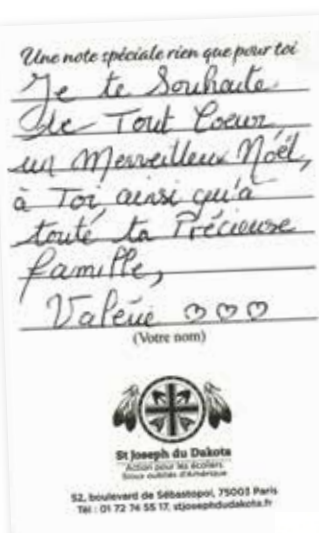 Une note spéciale rien que pour toi
Je te Souhaite
de Tout Coeur,
un Merveilleux Noël,
à Toi, ainsi qu'à
toute ta Précieuse
famille,
Valérie
(Votre nom)
St Joseph du Dakota
Action pour les écoliers
Sioux oubliés d'Amérique
52, boulevard de Sébastopol, 75003 Paris
Tél : 01 72 74 55 17, stjosephdudakota.fr